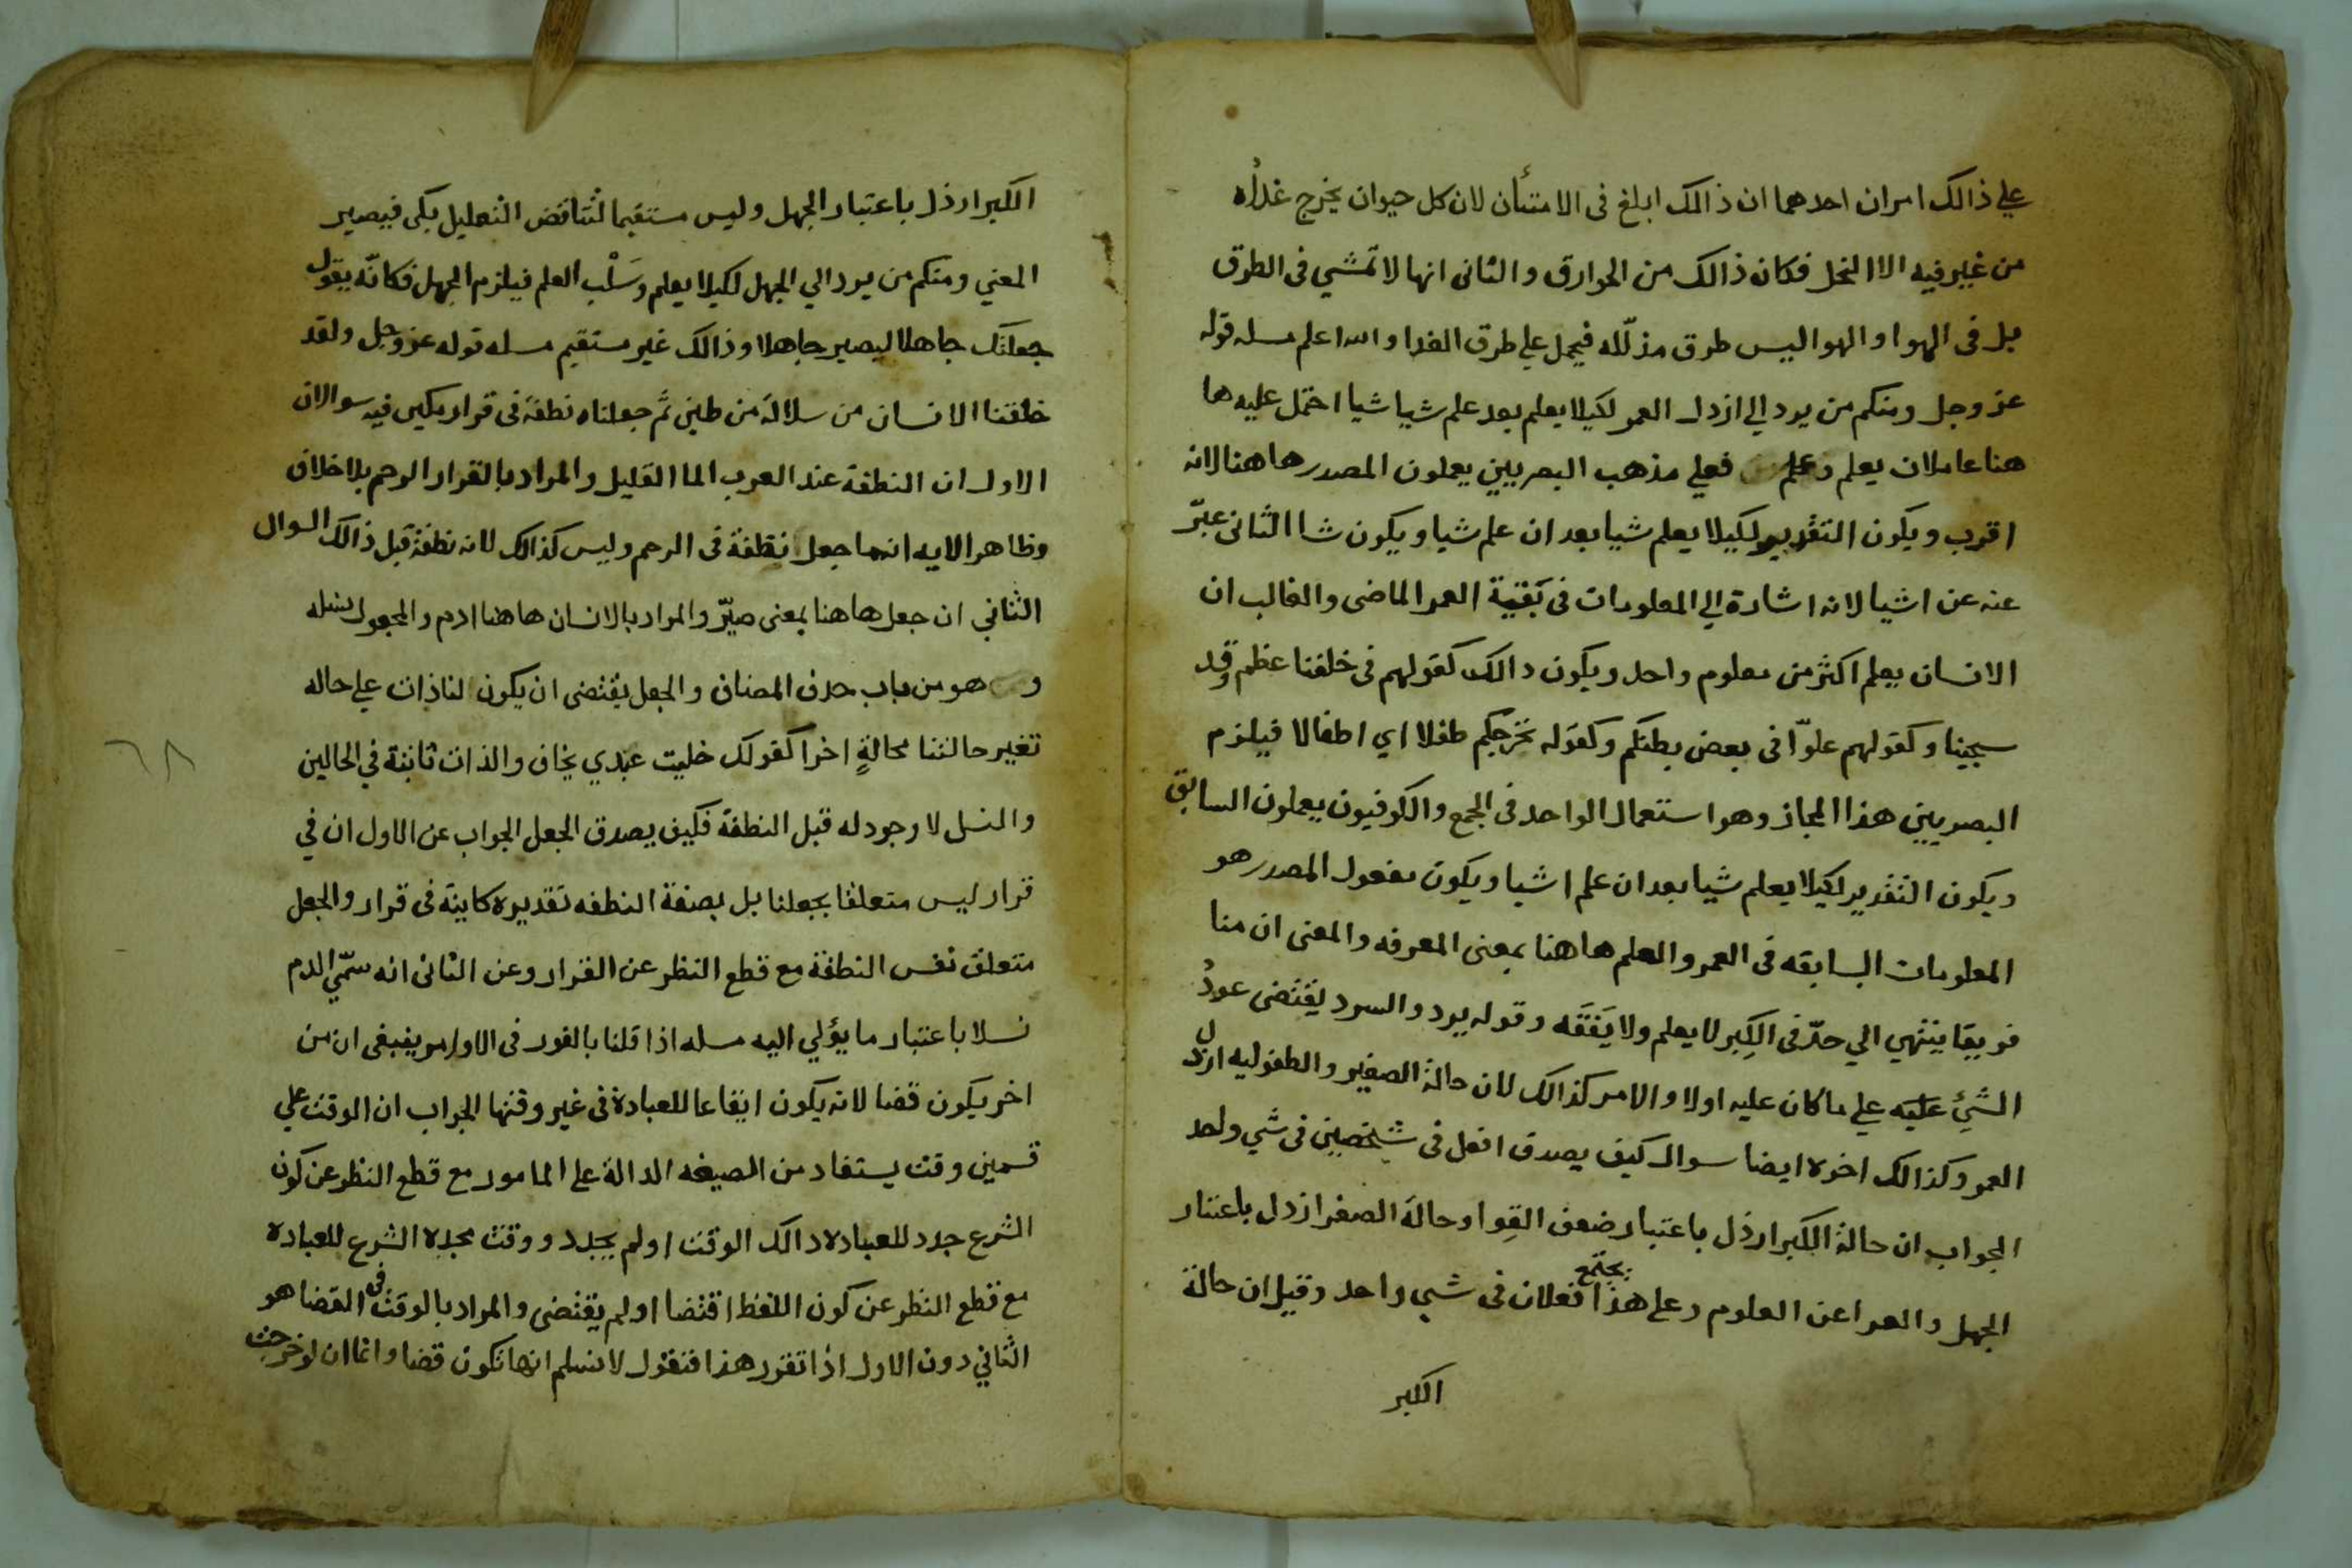 علي ذالك امران احدهما ان ذالك ابلغ فى الامتنأن لان كل حيوان يخرج غذاُه
من غير فيه الا النحل فكان ذالك من الخوارق والثانى انها لا تمشي فى الطرق
بل فى الهوا والهوا ليس طرق مذلّله فيحمل علي طرق الغدا والله اعلم مسله قوله
عز وجل ومنكم من يرد الي ارذل العمر لكيلا يعلم بعد علم شيا شيا احتمل عليه ها
هنا عاملان يعلم وعلم فعلي مذهب البصريين يعملون المصدر هاهنا لانه
اقرب ويكون التقدير لكيلا يعلم شيا بعد ان علم شيا ويكون شا الثانى عبّر
عنه عن اشيا لانه اشارة الي المعلومات فى بَقية العمر الماضى والغالب ان
الانسان يعلم اكثر من معلوم واحد ويكون دالك كقولهم فى خلقنا عظم وقد
سجينا وكقولهم علوّا فى بعض بطنكم وكقوله نخرجكم طفلا اي اطفالا فيلزم
البصريين هذا المجاز وهو استعمال الواحد فى الجمع والكوفيون يعملون السابق
ويكون التقدير لكيلا يعلم شيا بعد ان علم اشيا ويكون مفعول المصدر هو
المعلومات السابقه فى العمر والعلم هاهنا بمعنى المعرفه والمعنى ان منا
فريقا ينتهي الي حدّ فى الكِبر لا يعلم ولا يَفقَه وقوله يرد والرد يقتضى عودُ
الشئِ عليه علي ما كان عليه اولا والامر كذالك لان حالة الصغير والطفوليه ارذل
العمر وكذالك اخره ايضا سوال كيف يصدق افعل فى شخصين فى شي واحد
الجواب ان حالة الكبر ارذل باعتبار ضعف القِوا وحالة الصغر ارذل باعتبار
الجهل والعرا عن العلوم وعلي هذا يجتمع افعلان فى شي واحد وقيل ان حالة
الكبر
الكبر ارذل باعتبار الجهل وليس مستقيما لتناقض التعليل بكى فيصير
المعني ومنكم من يرد الي الجهل لكيلا يعلم وسَلْب العلم فيلزم الجهل فكانّه يقول
جعلتك جاهلا ليصير جاهلا وذالك غير مستقيم مسله قوله عز وجل ولقد
خلقنا الانسان من سلالة من طين ثم جعلناه نطفة فى قرار مكين فيه سوالان
الاول ان النطفة عند العرب الما القليل والمراد بالقرار الرحم بلا خلاف
وظاهر الايه انما جعل نطفة فى الرحم وليس كذالك لانه نطفة قبل ذالك السوال
الثاني ان جعل هاهنا بمعنى صيّر والمراد بالانسان هاهنا ادم والمجعول نسله
وهو من باب حذف المضاف والجعل يقتضى ان يكون لنا ذات علي حاله
تغير حالتنا محالةٍ اخرا كقولك خليت عبدي يخاف والذات ثابتة في الحالين
والنسل لا وجود له قبل النطفة فكيف يصدق الجعل الجواب عن الاول ان في
قرار ليس متعلقا بجعلنا بل بصفة النطفه تقديره كاينة فى قرار والجعل
متعلق نفس النطفة مع قطع النظر عن القرار وعن الثانى انه سمّي الدم
نسلا باعتبار ما يؤلي اليه مسله اذا قلنا بالفور فى الاوامر ينبغى ان من
اخر يكون قضا لانه يكون ايقاعا للعبادة فى غير وقتها الجواب ان الوقت علي
قسمين وقت يستفاد من الصيغه الدالة علي المامور مع قطع النظر عن كون
الشرع جدد للعباده دالك الوقت اولم يجدد ووقت يجدد الشرع للعباده
مع قطع النظر عن كون اللفظ اقتضا اولم يقتضى والمراد بالوقت فى القضا هو
الثاني دون الاول اذا تقرر هذا فنقول لا نسلم انها تكون قضا وانما ان لو خرجت
٦٨